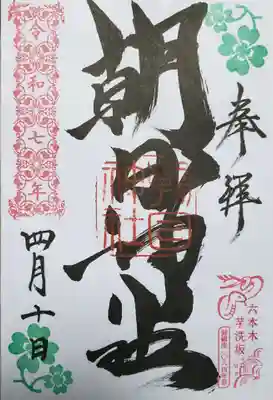 奉拝
六本木
芋洗坂
朝日神社
朝日神社
令和七年
四月十日